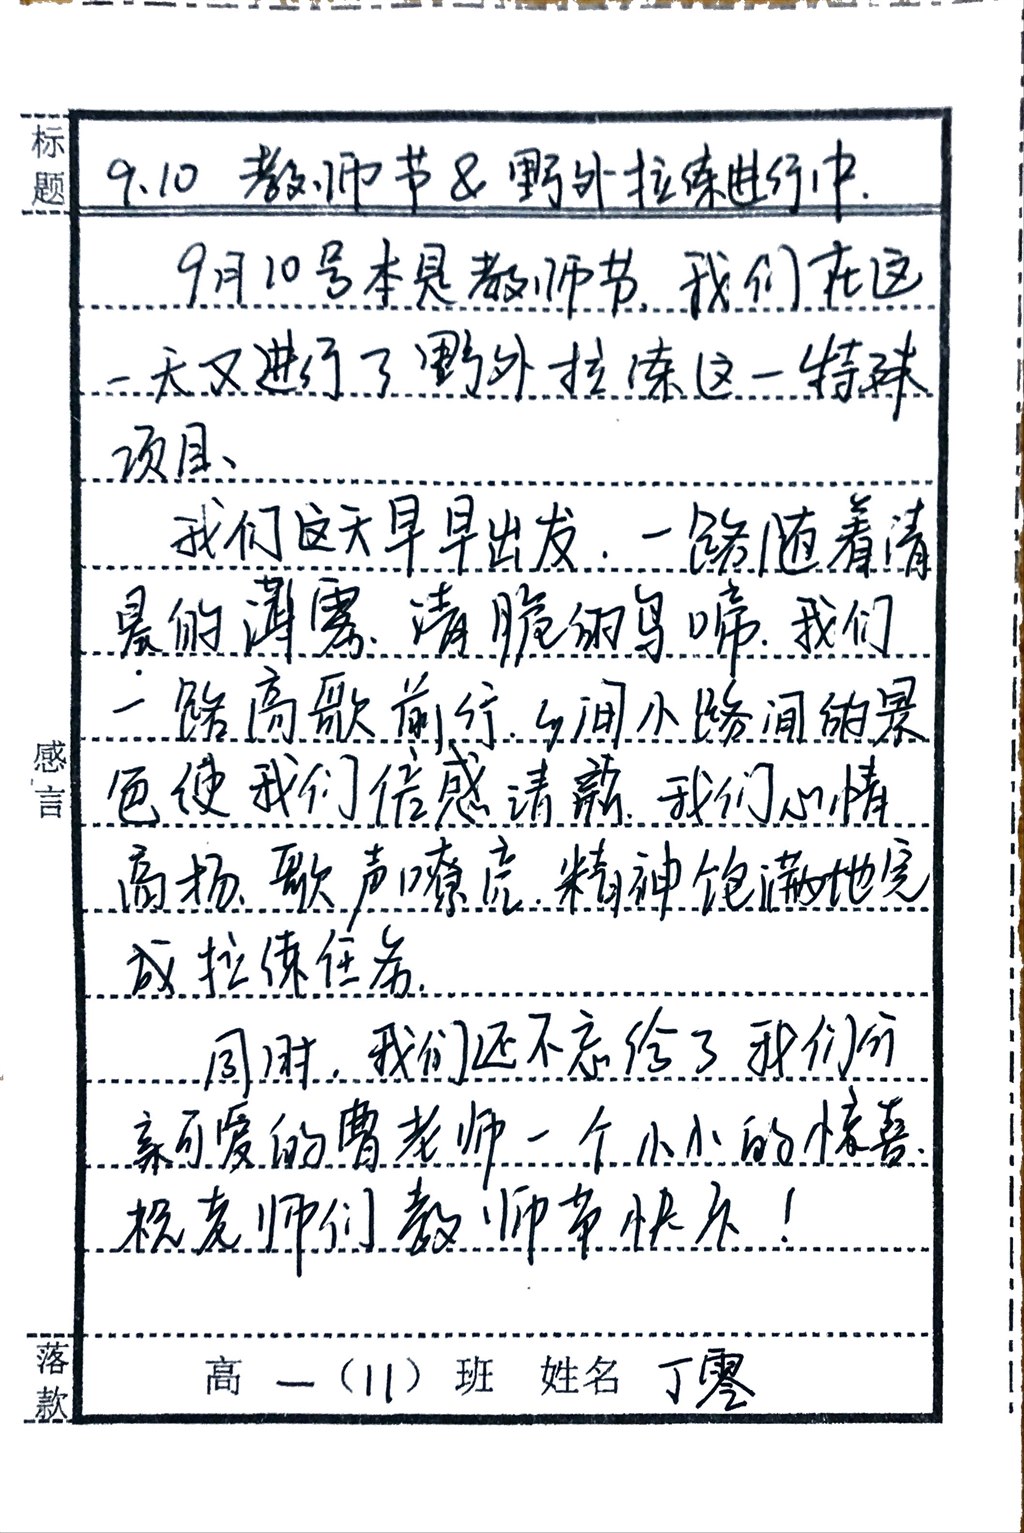 标题
9.10 教师节 & 野外拉练进行中.
9月10号本是教师节.我们在这
一天又进行了野外拉练这一特殊
项目、
我们这天早早出发.一路随着清
晨的薄雾、清脆的鸟啼.我们
一路高歌前行.乡间小路间的景
色使我们倍感清新.我们心情
高扬、歌声嘹亮.精神饱满地完
成拉练任务.
同时.我们还不忘给了我们的
亲可爱的曹老师一个小小的惊喜.
祝老师们教师节快乐!
感言
落款
高一(11)班 姓名 丁零